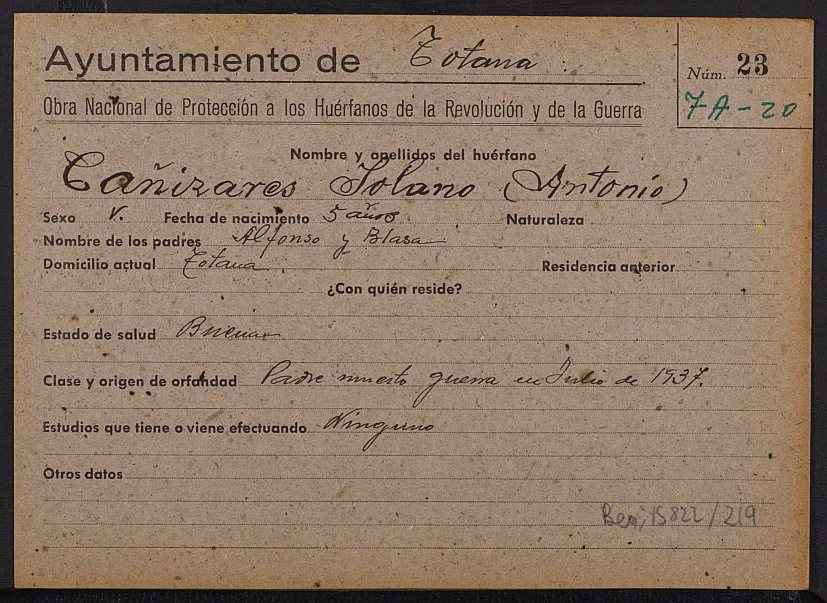 Ayuntamiento de Totana
Núm. 23
7-A-20
Obra Nacional de Protección a los Huérfanos de la Revolución y de la Guerra
Nombre y apellidos del huérfano
Cañizares Solano (Antonio)
Sexo V. Fecha de nacimiento 5 años Naturaleza
Nombre de los padres Alfonso y Blasa
Domicilio actual Totana Residencia anterior
¿Con quién reside?
Estado de salud Buena
Clase y origen de orfandad Padre muerto guerra en Julio de 1937.
Estudios que tiene o viene efectuando Ninguno
Otros datos
Ben, 15822/219